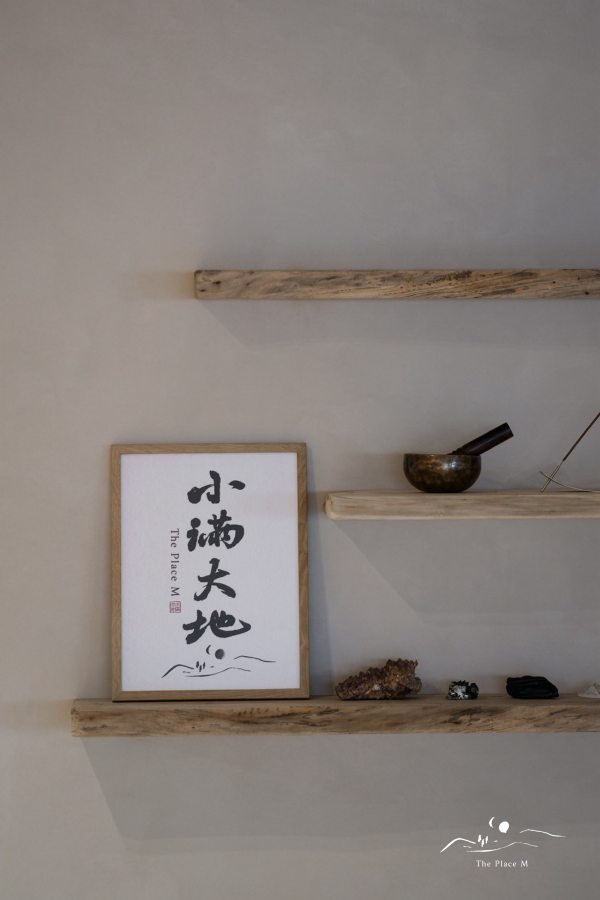 小滿大地
The Place M
The Place M